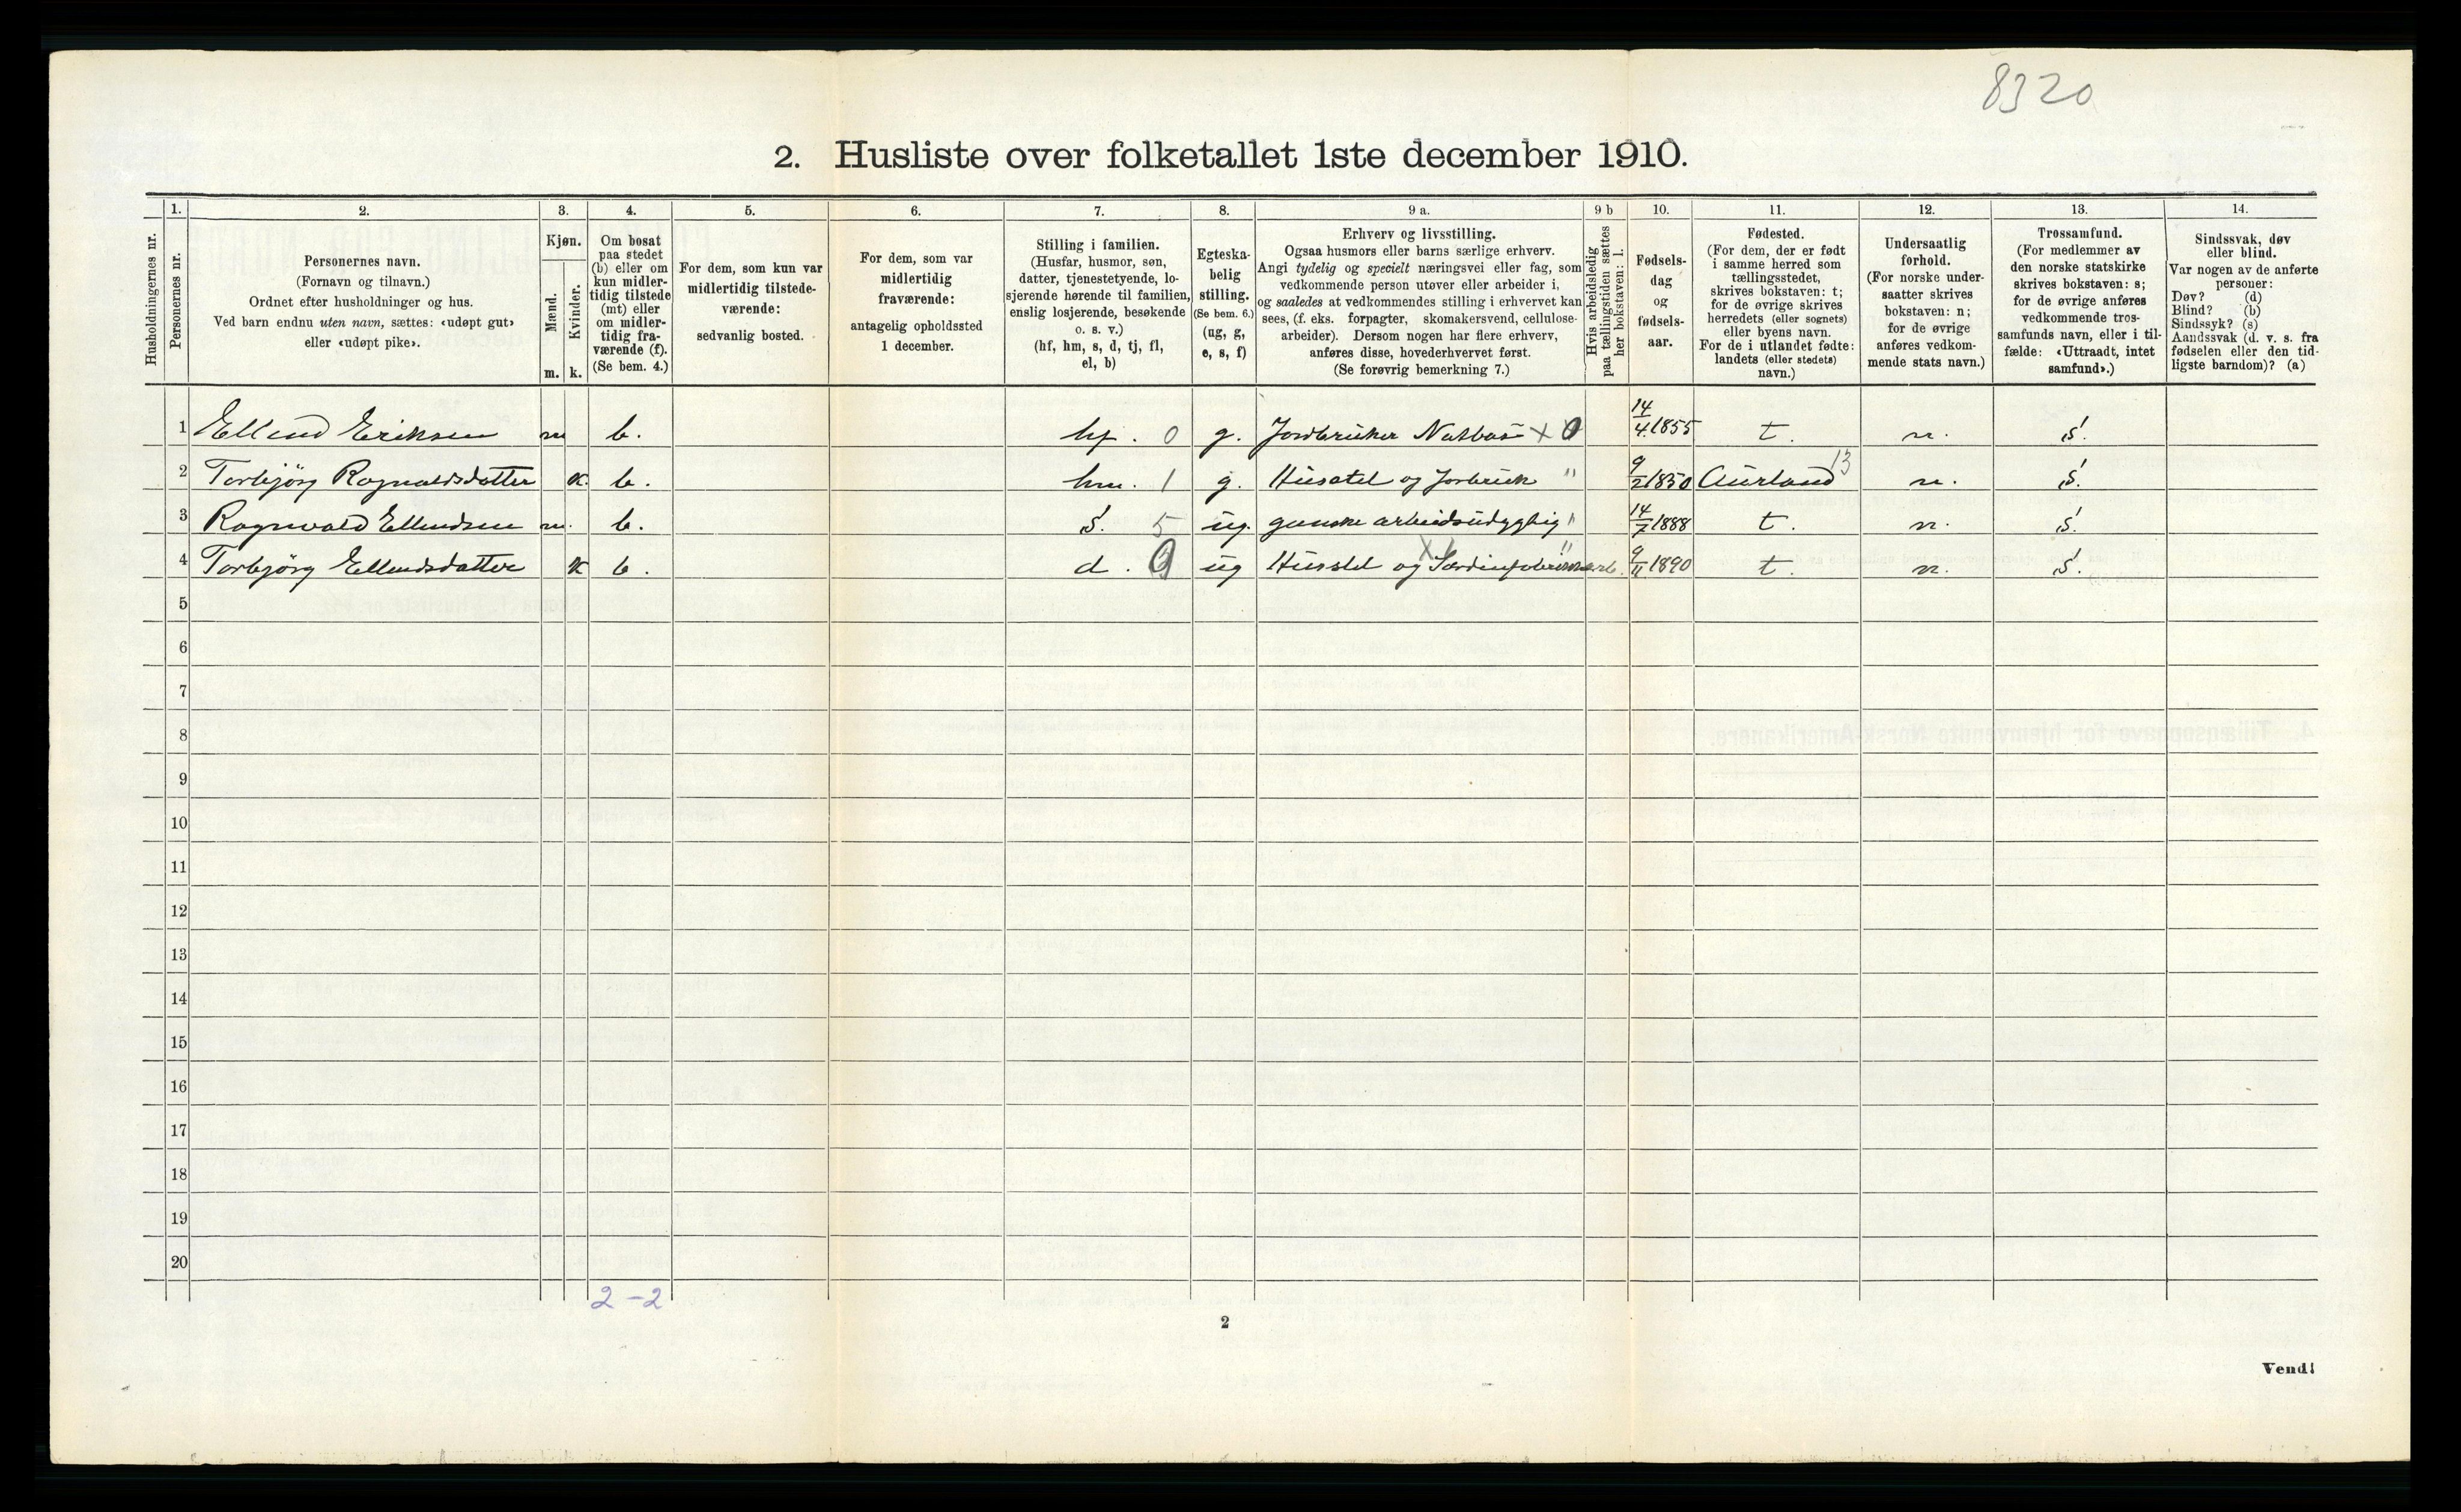 8320
2. Husliste over folketallet 1ste december 1910.
Husholdningernes nr.
1.
Personernes nr.
2.
Personernes navn.
(Fornavn og tilnavn.)
Ordnet efter husholdninger og hus.
Ved barn endnu uten navn, sættes: «udøpt gut»
eller «udøpt pike».
3.
Kjøn.
Mænd.
Kvinder.
m. k.
4.
Om bosat
paa stedet
(b) eller om
kun midler-
tidig tilstede
(mt) eller
om midler-
tidig fra-
værende (f).
(Se bem. 4.)
5.
For dem, som kun var
midlertidig tilstede-
værende:
sedvanlig bosted.
6.
For dem, som var
midlertidig
fraværende:
antagelig opholdssted
1 december.
7.
Stilling i familien.
(Husfar, husmor, søn,
datter, tjenestetyende, lo-
sjerende hørende til familien,
enslig losjerende, besøkende
o. s. v.)
(hf, hm, s, d, tj, fl,
el, b)
8.
Egteska-
belig
stilling.
(Se bem. 6.)
(ug, g,
e, s, f)
9 a.
Erhverv og livsstilling.
Ogsaa husmors eller barns særlige erhverv.
Angi tydelig og specielt næringsvei eller fag, som
vedkommende person utøver eller arbeider i,
og saaledes at vedkommendes stilling i erhvervet kan
sees, (f. eks. forpagter, skomakersvend, cellulose-
arbeider). Dersom nogen har flere erhverv,
anføres disse, hovederhvervet først.
(Se forøvrig bemerkning 7.)
9 b
Hvis arbeidsledig
paa tællingstiden sættes
her bokstaven: l.
10.
Fødsels-
dag
og
fødsels-
aar.
11.
Fødested.
(For dem, der er født
i samme herred som
tællingsstedet,
skrives bokstaven: t;
for de øvrige skrives
herredets (eller sognets)
eller byens navn.
For de i utlandet fødte:
landets (eller stedets)
navn.)
12.
Undersaatlig
forhold.
(For norske under-
saatter skrives
bokstaven: n;
for de øvrige
anføres vedkom-
mende stats navn.)
13.
Trossamfund.
(For medlemmer av
den norske statskirke
skrives bokstaven: s;
for de øvrige anføres
vedkommende tros-
samfunds navn, eller i til-
fælde: «Uttraadt, intet
samfund».)
14.
Sindssvak, døv
eller blind.
Var nogen av de anførte
personer:
Døv? (d)
Blind? (b)
Sindssyk? (s)
Aandssvak (d. v. s. fra
fødselen eller den tid-
ligste barndom)? (a)
1 Ellend Eriksen m b. hf. 0 g. Jordbruker x 0 14/4 1855 t. n. s.
2 Torbjörg Ragnvaldsdatter k. b. hm. 1 g. Husstel og Jorbruk " 9/2 1850 Aurland 13 n. s.
3 Ragnvald Ellendsen m. b. s. 5 ug. ganske arbeidsudygtig " 14/7 1888 t. n. s.
4 Torbjörg Ellendsdatter k b. d. ug Husstel og Sardinfabrikkarb. " 9/11 1890 t. n. s.
5
6
7
8
9
10
11
12
13
14
15
16
17
18
19
20
2 - 2
2
Vend!